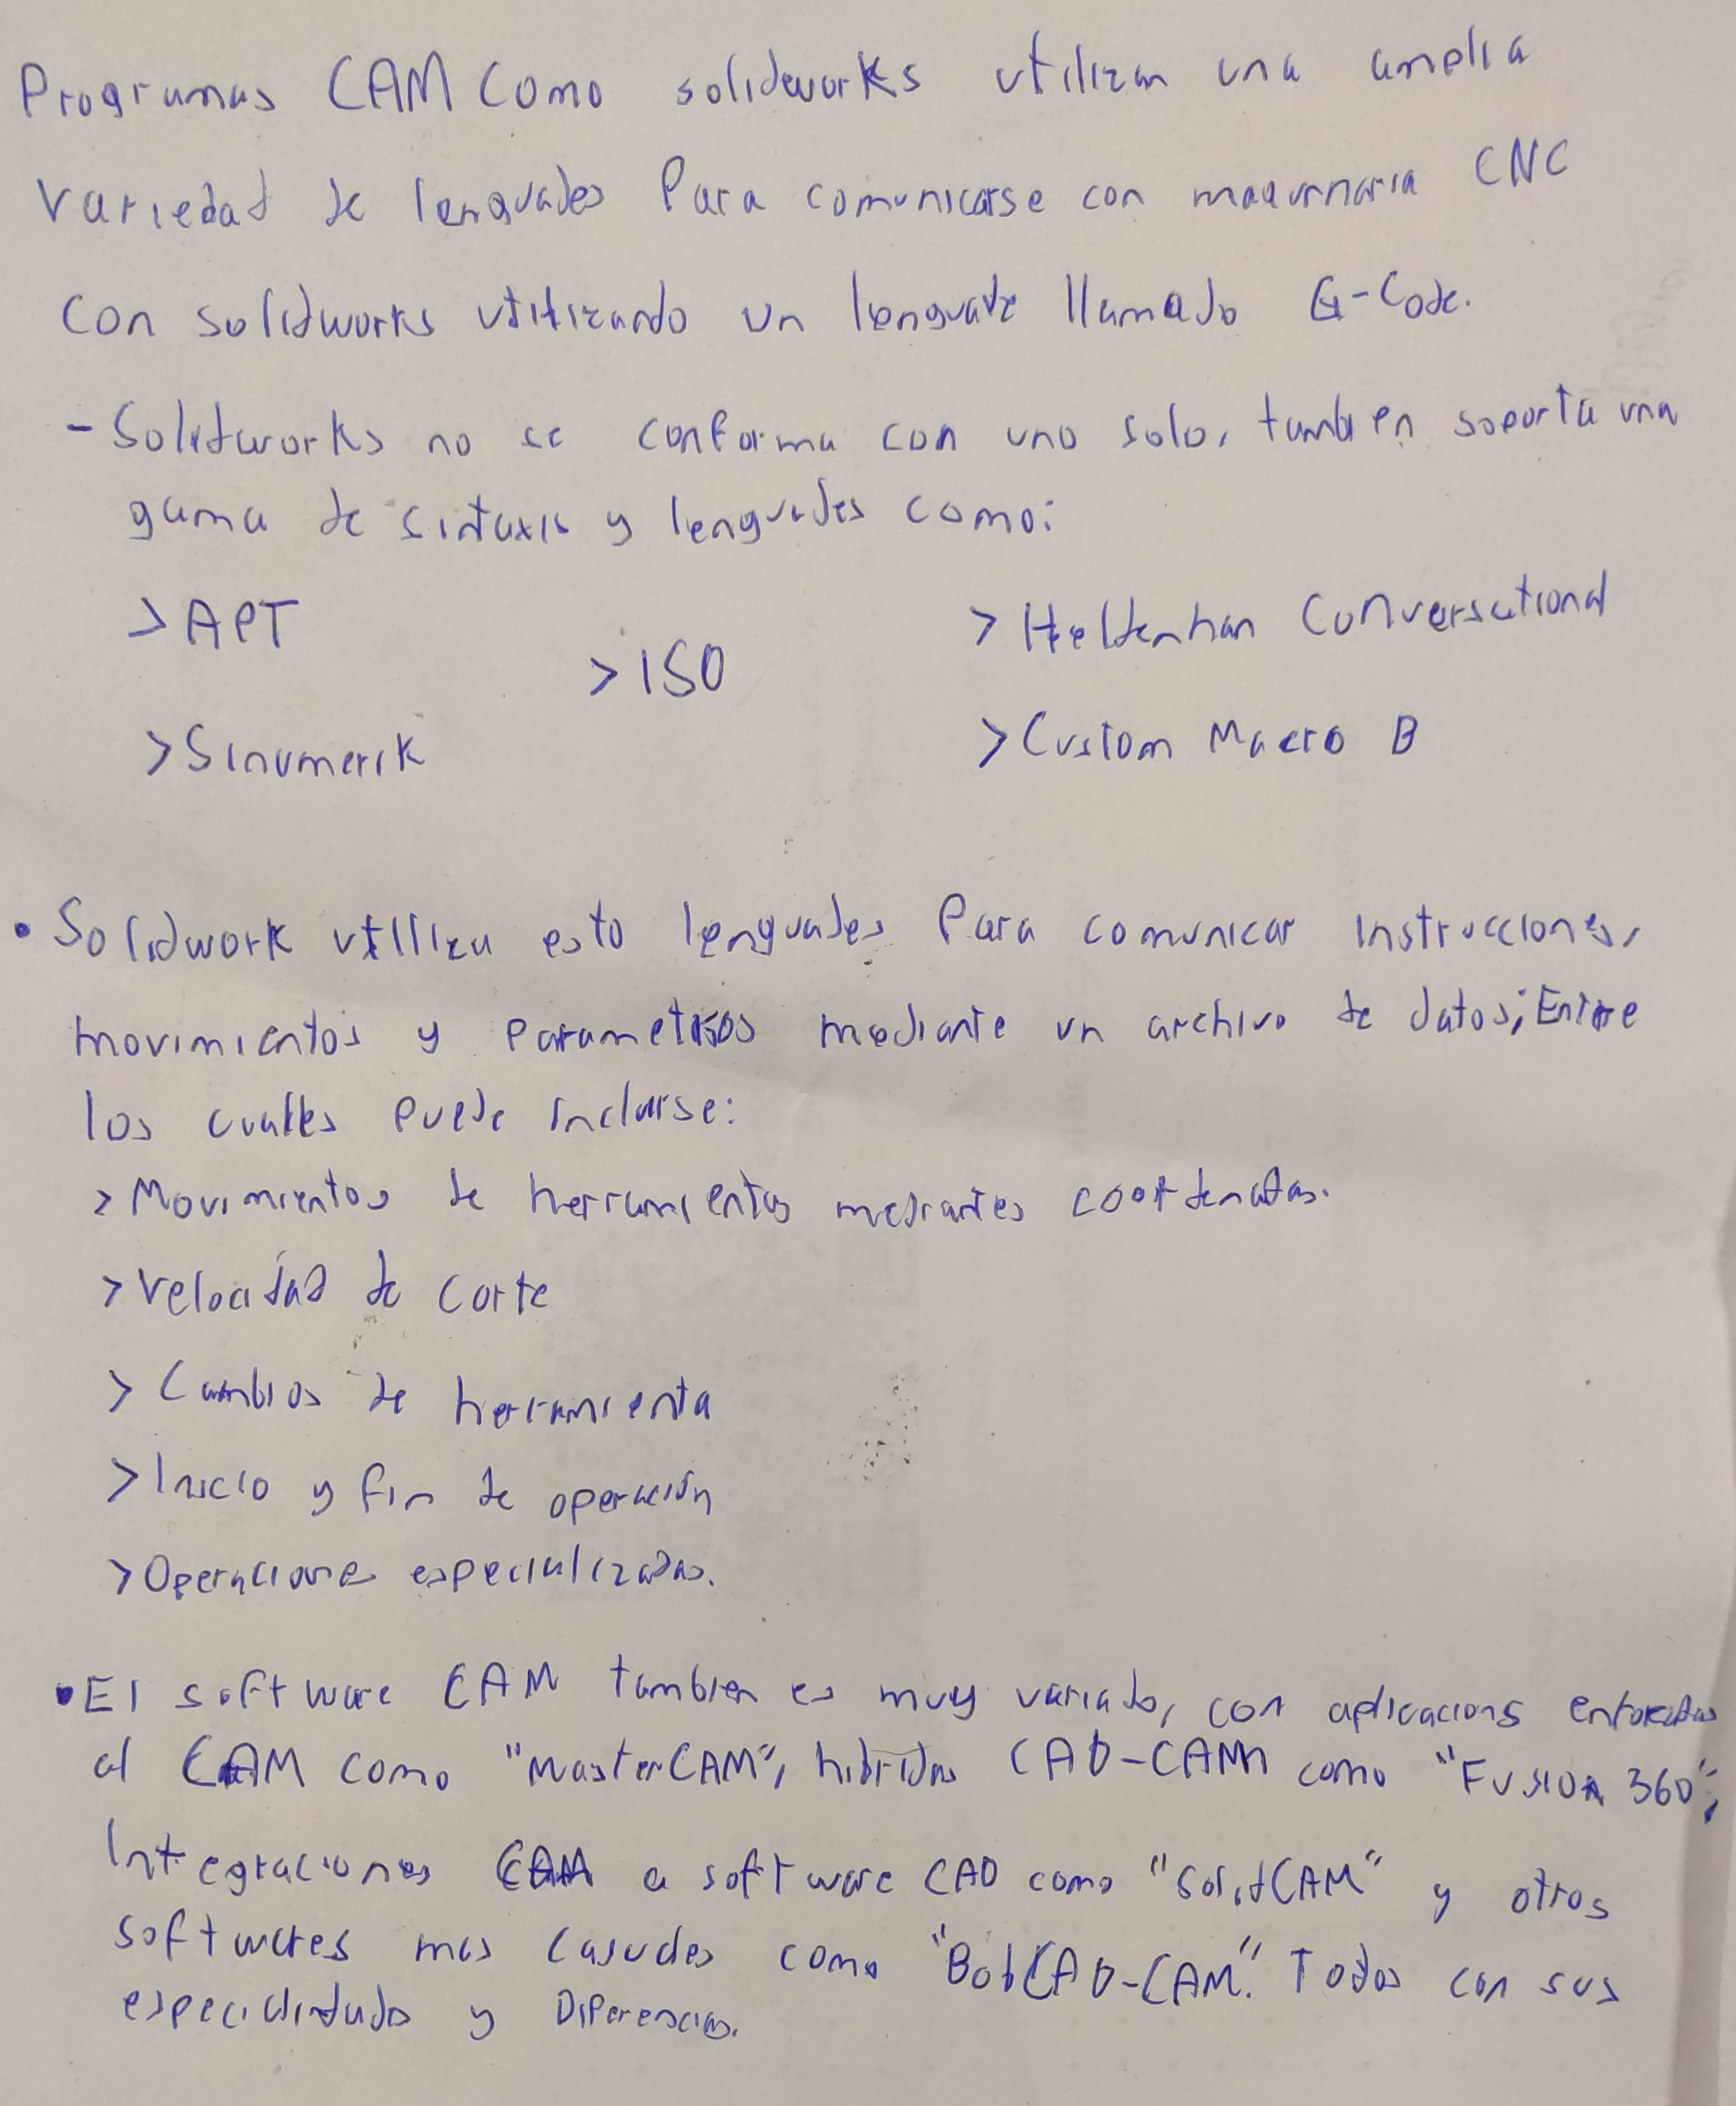 Programas CAM como solidworks utilizan una amplia
variedad de lenguajes Para comunicarse con maquinaria CNC
con solidworks utilizando un lenguaje llamado G-Code.
- Solidworks no se conforma con uno solo, tambien soporta una
gama de sintaxis y lenguajes como:
> APT
> ISO
> Heidenhan Conversational
> Sinumerik
> Custom Macro B
• Solidwork utiliza esto lenguajes Para comunicar instrucciones,
movimientos y parametros mediante un archivo de datos; Entre
los cuales puede incluirse:
> Movimientos de herramientas mediantes coordenadas.
> Velocidad de corte
> Cambios de herramienta
> Inicio y fin de operación
> Operaciones especializadas.
• El software CAM tambien es muy variado, con aplicacions enfocadas
al CAM como "MasterCAM", hibridos CAD-CAM como "Fusion 360";
Integraciones CAM a software CAD como "SolidCAM" y otros
softwares mas casuales como "BobCAD-CAM". Todos con sus
y Diferencias.